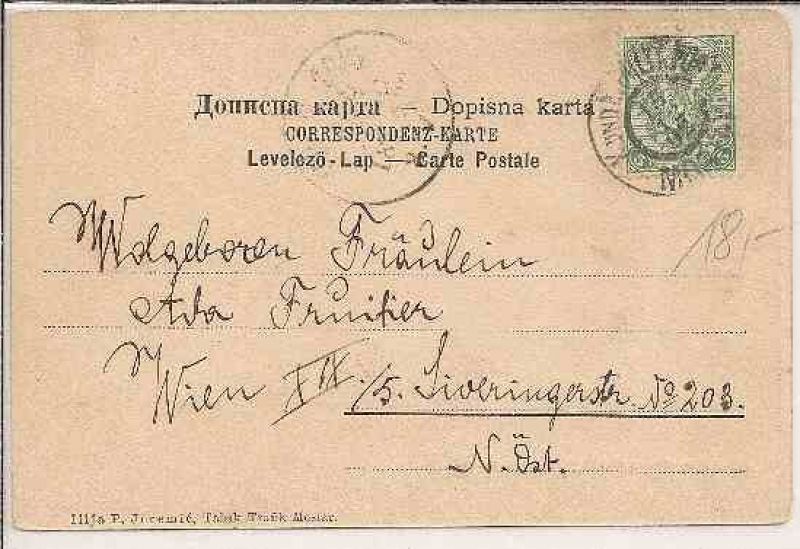 Дописна карта — Dopisna karta
CORRESPONDENZ-KARTE
Levelező-Lap — Carte Postale
Wolgeboren Fräulein
18.-
Ada Fruifier
Wien XIX/5. Siveringerstr. No 203.
N. Öst.
Ilija P. Jeremić, Tabak Trafik Mostar.